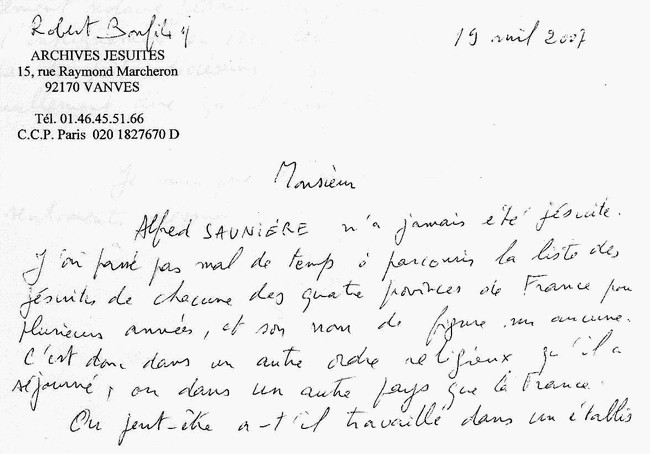 Robert Bonfils sj
19 avril 2007
ARCHIVES JESUITES
15, rue Raymond Marcheron
92170 VANVES
Tél. 01.46.45.51.66
C.C.P. Paris 020 1827670 D
Monsieur
Alfred SAUNIÈRE n'a jamais été jésuite.
J'ai passé pas mal de temps à parcourir la liste des
jésuites de chacune des quatre provinces de France pour
plusieurs années, et son nom ne figure sur aucune.
C'est donc dans un autre ordre religieux qu'il a
séjourné, ou dans un autre pays que la France.
Ou peut-être a-t'il travaillé dans un établis